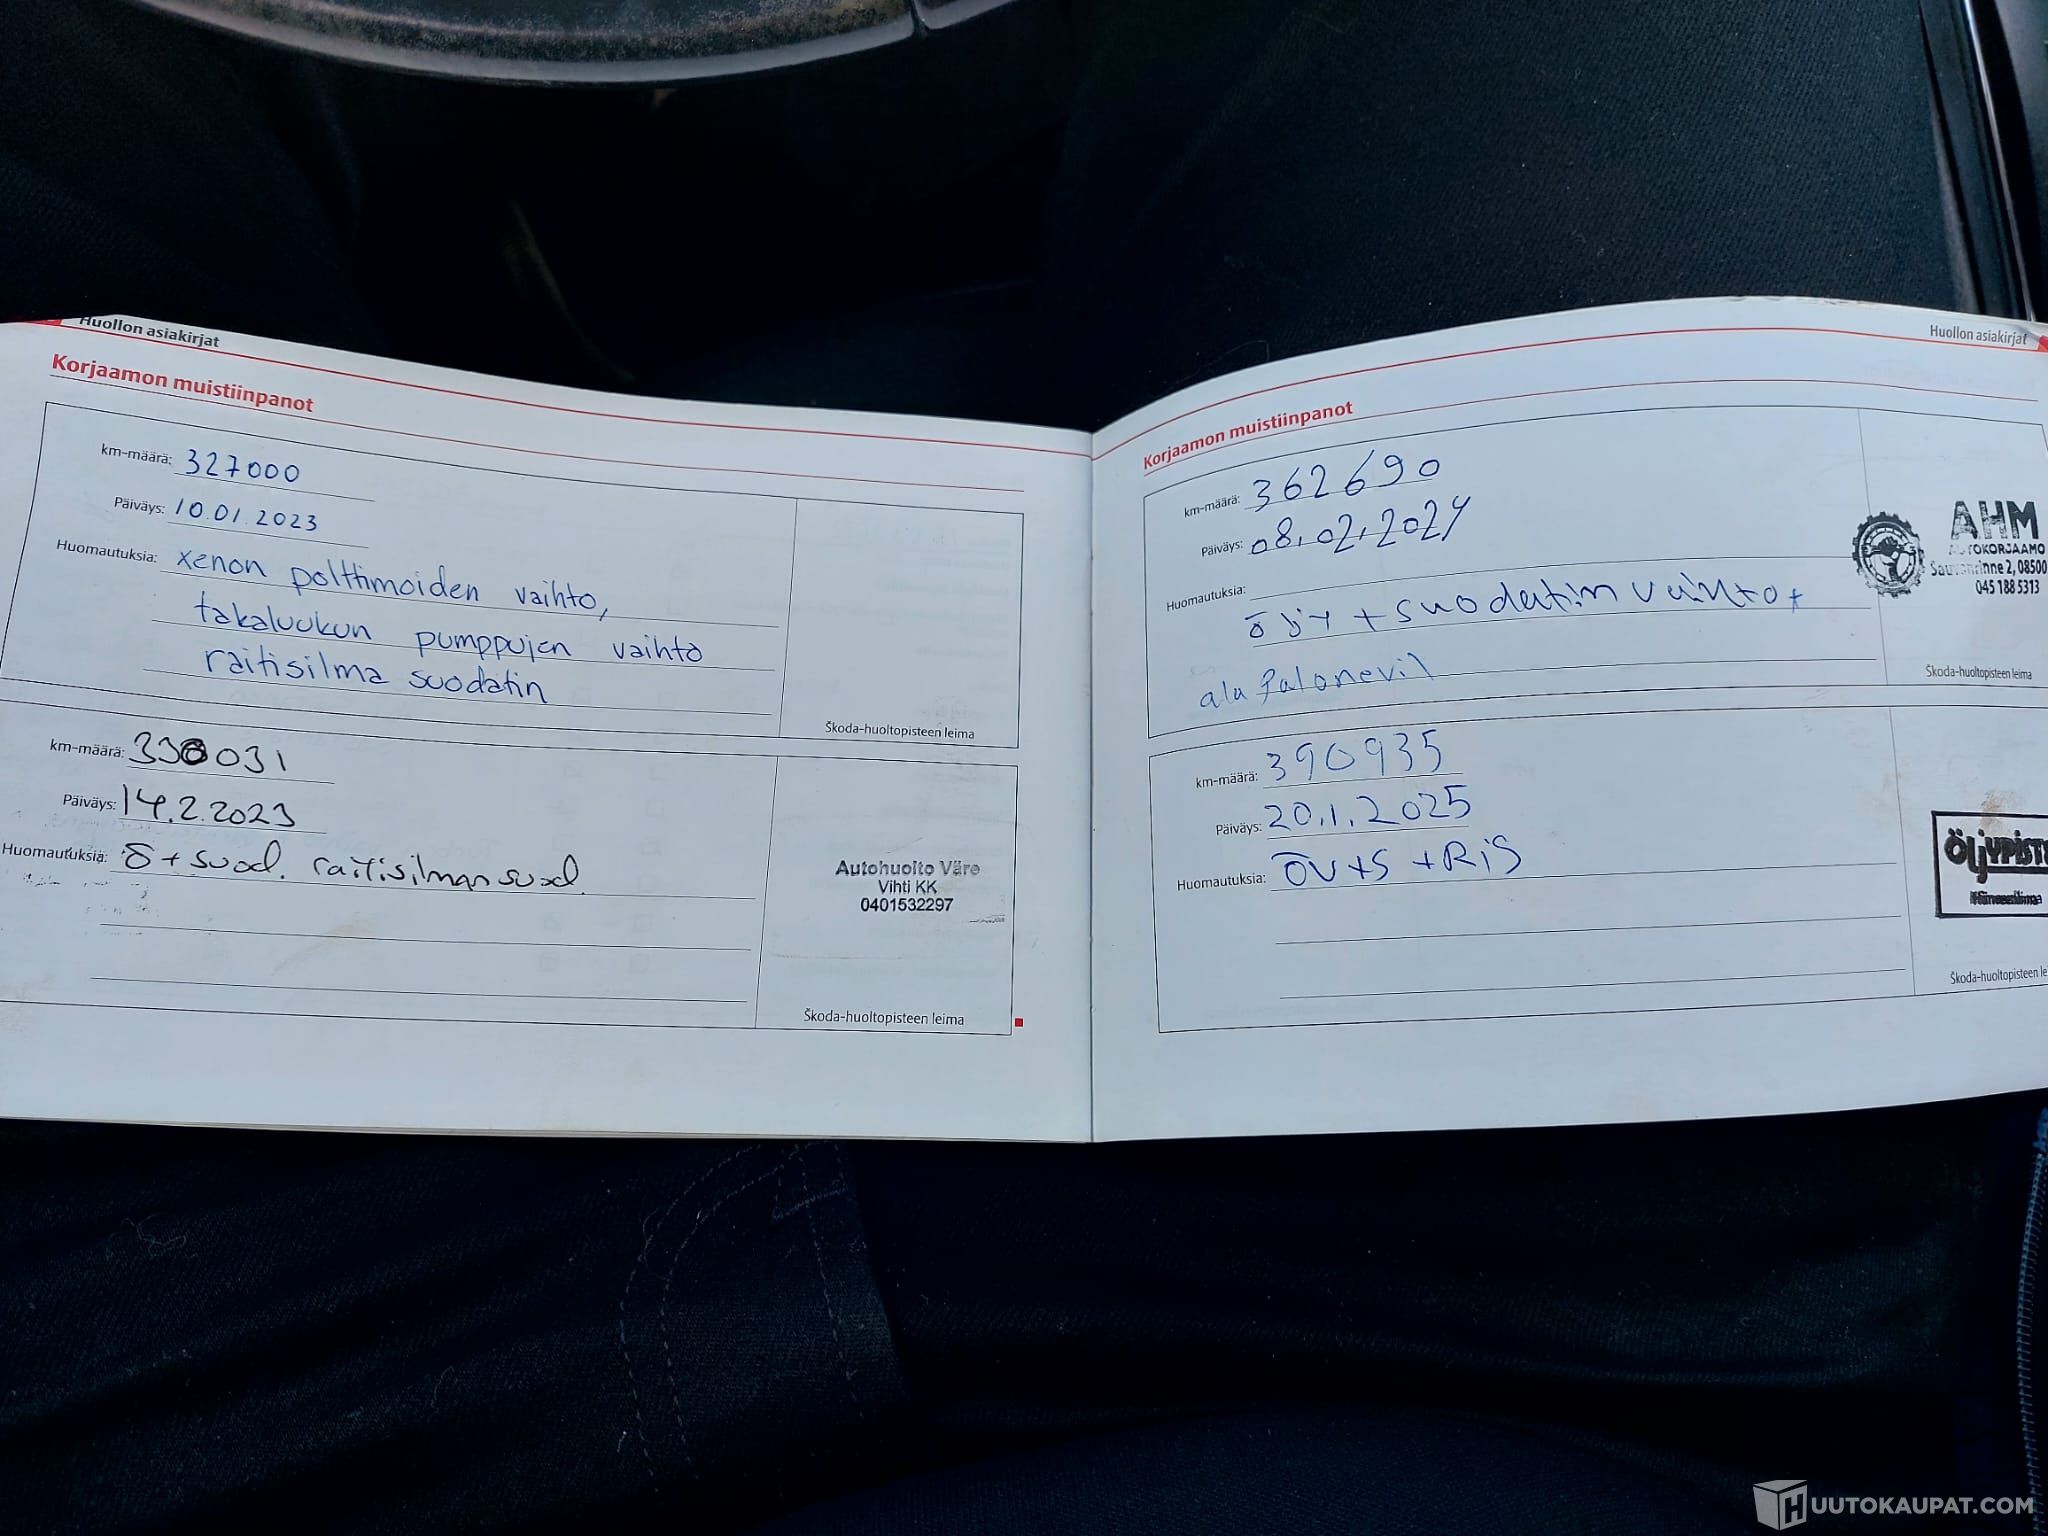 Huollon asiakirjat
Korjaamon muistiinpanot
km-määrä: 327000
Päiväys: 10.01.2023
Huomautuksia: xenon polttimoiden vaihto,
takaluukun pumppujen vaihto
raitisilma suodatin
Škoda-huoltopisteen leima
km-määrä: 330031
Päiväys: 14.2.2023
Huomautuksia: Ö + suod. raitisilman suod.
Autohuolto Väre
Vihti KK
0401532297
Škoda-huoltopisteen leima
Huollon asiakirjat
Korjaamon muistiinpanot
km-määrä: 362690
Päiväys: 08.02.2024
Huomautuksia:
+ suodatin vaihto +
ala
AHM
AUTOKORJAAMO
2, 08500
045 188 5313
Škoda-huoltopisteen leima
km-määrä: 390935
Päiväys: 20.1.2025
Huomautuksia: ÖV+S +RiS
ÖLJYPIST
Škoda-huoltopisteen le
HUUTOKAUPAT.COM